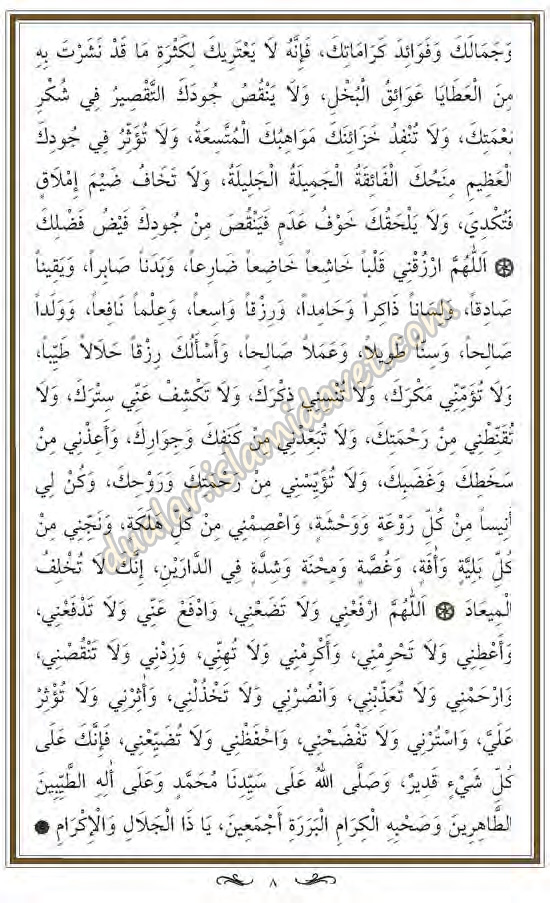 وَجَمَالَكَ وَفَوَائِدَ كَرَامَاتِكَ، فَإِنَّهُ لَا يَعْتَرِيكَ لِكَثْرَةِ مَا قَدْ نَشَرْتَ بِهِ
مِنَ الْعَطَايَا عَوَائِقُ الْبُخْلِ، وَلَا يَنْقُصُ جُودَكَ التَّقْصِيرُ فِي شُكْرِ
نِعْمَتِكَ، وَلَا تُنْفِدُ خَزَائِنَكَ مَوَاهِبُكَ الْمُتَّسِعَةُ، وَلَا تُؤَثِّرُ فِي جُودِكَ
الْعَظِيمِ مِنَحُكَ الْفَائِقَةُ الْجَمِيلَةُ الْجَلِيلَةُ، وَلَا تَخَافُ ضَيْمَ إِمْلَاقٍ
فَتُكْدِيَ، وَلَا يَلْحَقُكَ خَوْفُ عَدَمٍ فَيَنْقُصَ مِنْ جُودِكَ فَيْضُ فَضْلِكَ
۞ اَللّٰهُمَّ ارْزُقْنِي قَلْباً خَاشِعاً خَاضِعاً ضَارِعاً، وَبَدَناً صَابِراً، وَيَقِيناً
صَادِقاً، وَلِسَاناً ذَاكِراً وَحَامِداً، وَرِزْقاً وَاسِعاً، وَعِلْماً نَافِعاً، وَوَلَداً
صَالِحاً، وَسِنّاً طَوِيلاً، وَعَمَلاً صَالِحاً، وَأَسْأَلُكَ رِزْقاً حَلَالاً طَيِّباً،
وَلَا تُؤَمِّنِّي مَكْرَكَ، وَلَا تُنْسِنِي ذِكْرَكَ، وَلَا تَكْشِفْ عَنِّي سِتْرَكَ، وَلَا
تُقَنِّطْنِي مِنْ رَحْمَتِكَ، وَلَا تُبَعِّدْنِي مِنْ كَنَفِكَ وَجِوَارِكَ، وَأَعِذْنِي مِنْ
سَخَطِكَ وَغَضَبِكَ، وَلَا تُؤَيِّسْنِي مِنْ رَحْمَتِكَ وَرَوْحِكَ، وَكُنْ لِي
أَنِيساً مِنْ كُلِّ رَوْعَةٍ وَوَحْشَةٍ، وَاعْصِمْنِي مِنْ كُلِّ هَلَكَةٍ، وَنَجِّنِي مِنْ
كُلِّ بَلِيَّةٍ وَاٰفَةٍ، وَغُصَّةٍ وَمِحْنَةٍ وَشِدَّةٍ فِي الدَّارَيْنِ، إِنَّكَ لَا تُخْلِفُ
الْمِيعَادَ ۞ اَللّٰهُمَّ ارْفَعْنِي وَلَا تَضَعْنِي، وَادْفَعْ عَنِّي وَلَا تَدْفَعْنِي،
وَأَعْطِنِي وَلَا تَحْرِمْنِي، وَأَكْرِمْنِي وَلَا تُهِنِّي، وَزِدْنِي وَلَا تَنْقُصْنِي،
وَارْحَمْنِي وَلَا تُعَذِّبْنِي، وَانْصُرْنِي وَلَا تَخْذُلْنِي، وَاٰثِرْنِي وَلَا تُؤْثِرْ
عَلَيَّ، وَاسْتُرْنِي وَلَا تَفْضَحْنِي، وَاحْفَظْنِي وَلَا تُضَيِّعْنِي، فَإِنَّكَ عَلَى
كُلِّ شَيْءٍ قَدِيرٌ، وَصَلَّى اللهُ عَلَى سَيِّدِنَا مُحَمَّدٍ وَعَلَى اٰلِهِ الطَّيِّبِينَ
الطَّاهِرِينَ وَصَحْبِهِ الْكِرَامِ الْبَرَرَةِ أَجْمَعِينَ، يَا ذَا الْجَلَالِ وَالْإِكْرَامِ
٨
dualar.islamidavet.com